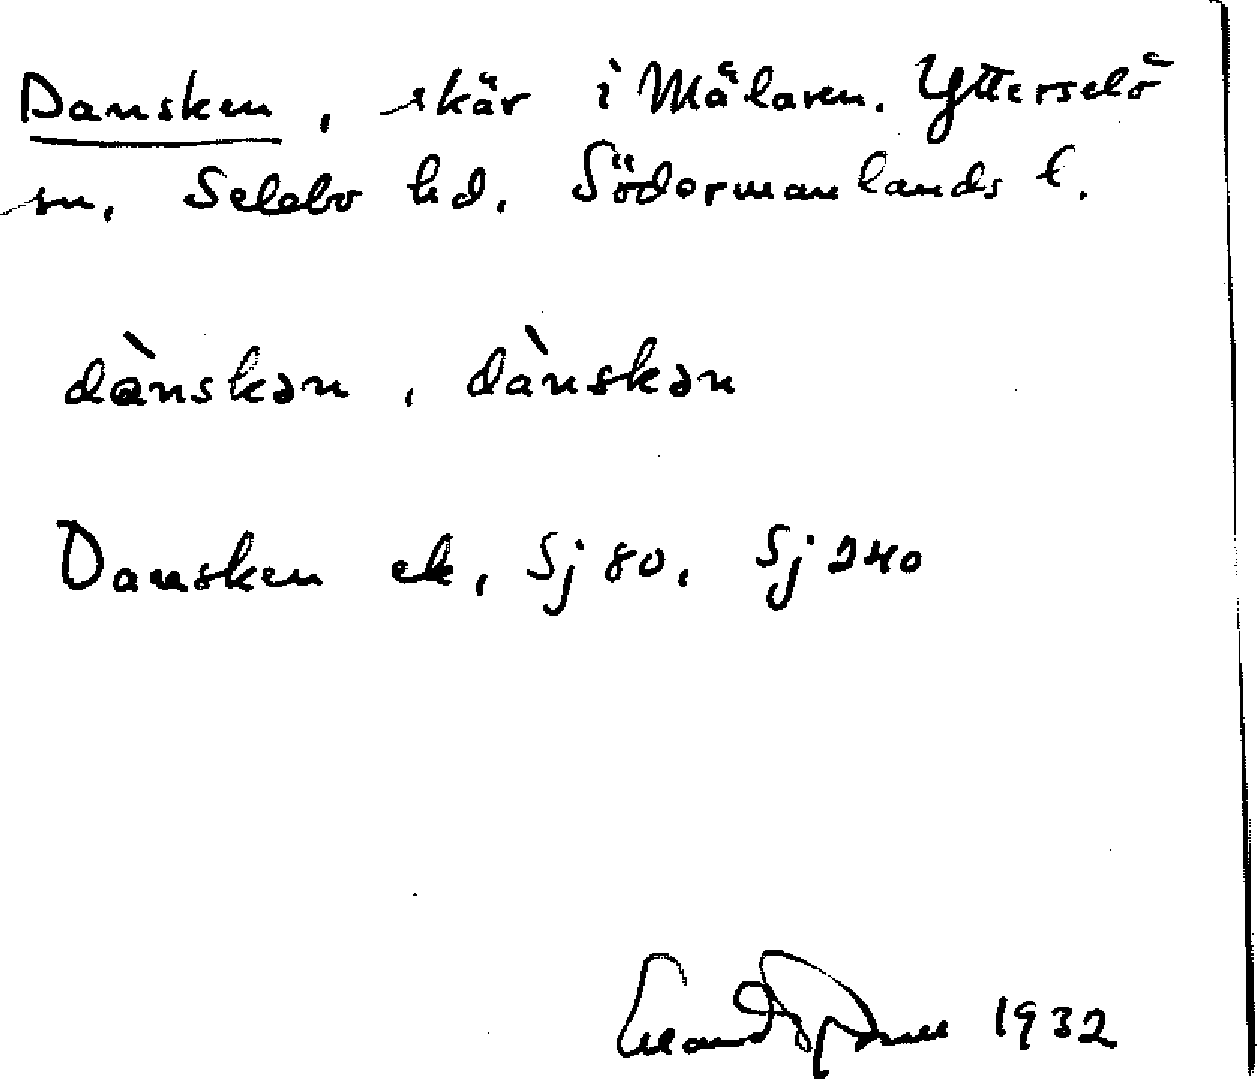 Dansken, skär i Mälaren. Ytterselö
sn. Selebo hd. Södermanlands l.
dànskən, dànskən
Dansken ek, Sj 80, Sj 240
1932